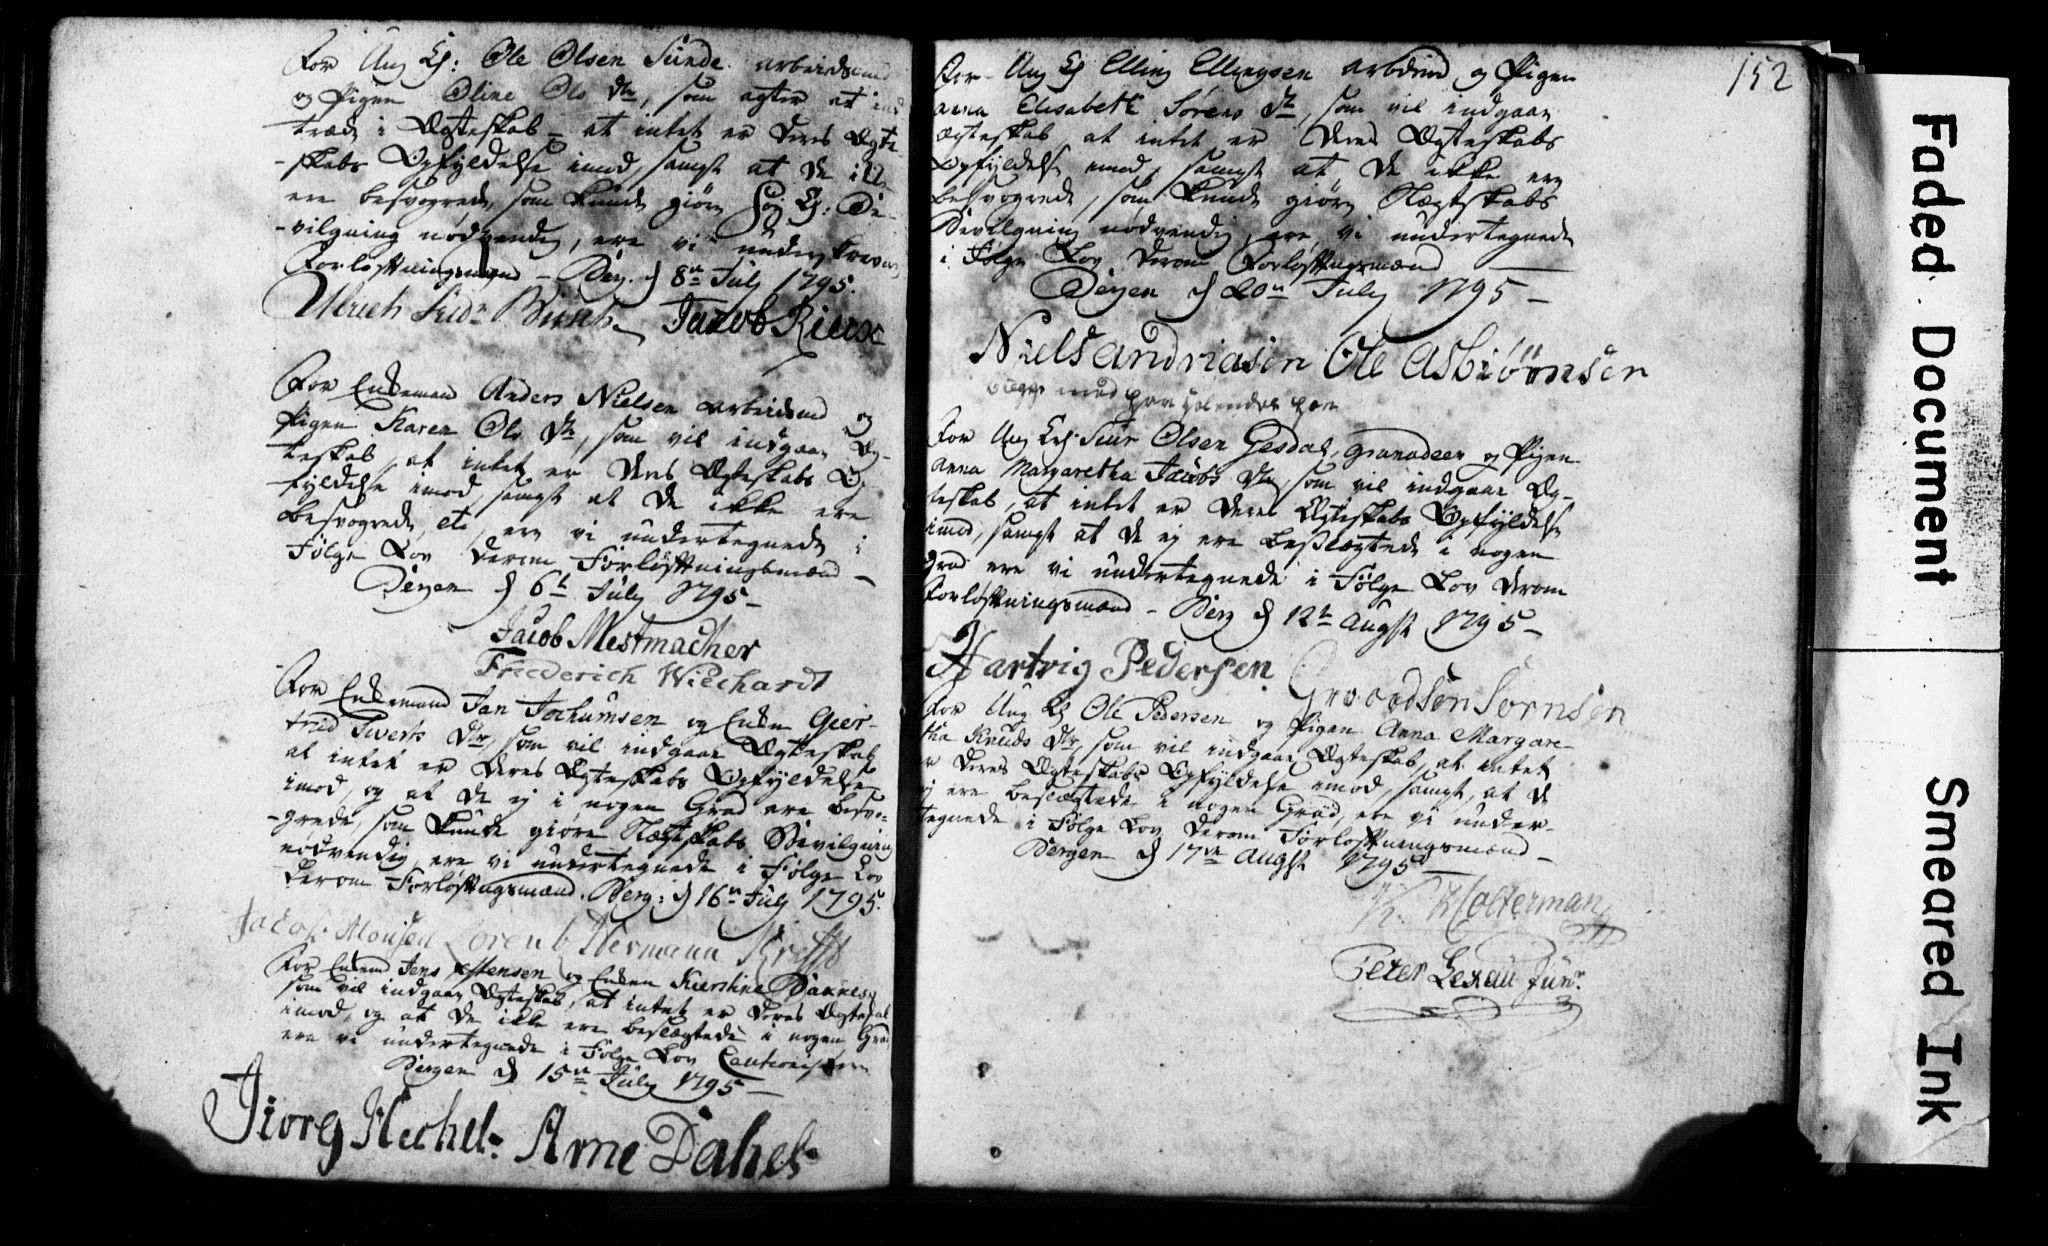 For Ung K: Ole Olsen Sunde arbeidsmd
og Pigen Oline Ols Dtr, som agter at ind
træde i Ægteskab at intet er Deres Ægte-
-skabs Opfyldelse imod, samt at De ikke
ere besvogrede, som kunde giøre Be-
-vilgning nødvendig, ere vi underskrevne
Forløftningsmænd - Berg. d 8de July 1795.
Ulrich Fridr Busch Jacob Riecx
For Enkemand Anders Nielsen arbeidsmd og
Pigen Karen Ols Dtr, som vil indgaae Æg-
teskab, at intet er Deres Ægteskabs Op
fyldelse imod, samt at De ikke ere
besvogrede etc, ere vi undertegnede i
Følge Lov derom Forløftningsmænd -
Bergen d 6te July 1795 -
Jacob Mestmacher
Friederich Wiechardt
For Enkemand Jan Jochumsen og Enken Gier-
trud Siverts Dtr, som vil indgaae Ægteskab
at intet er Deres Ægteskabs Opfyldelse
imod, og at De ej i nogen Grad ere besvo-
-grede, som kunde giøre Slægtskabs Bevilgning
nødvendig, ere vi undertegnede i Følge Lov
derom Forløftngsmænd. Berg: d 16de July 1795.
Jacob Monsen Hermann
For Enkemd Jens og Enken Kierstine
som vil indgaae Ægteskab, at intet er Deres Ægteskab
imod, og at De ikke ere beslægtede i nogen Grad
ere vi undertegnede i Følge Lov Cautionister
Bergen d 15de July 1795 -
Jiorg Hechel. Arne Dahel
152
For Ung K Elling Ellingsen arbdmd og Pigen
Anna Elisabeth Sørens Dtr, som vil indgaae
Ægteskab, at intet er Deres Ægteskabs
Opfyldelse imod, samt at De ikke ere
besvogrede, som kunde giøre Slægtskabs
Bevilgning nødvendig, ere vi undertegnede
i Følge Lov derom Forløftngsmænd
Bergen d 20de July 1795 -
Niels Andriasen Ole Asbiørnsen
med
For Ung K: Siur Olsen Gesdal, Granadeer og Pigen
Anna Margaretha Jacobs Dtr, som vil indgaae Æg-
teskab, at intet er Deres Ægteskabs Opfyldelse
imod, samt at De ej ere beslægtede i nogen
Grad ere vi undertegnede i Følge Lov derom
Forløftningsmænd - Berg d 12te Augst 1795 -
Hartvig Pedersen Sornsen
For Ung K Ole Pedersen og Pigen Anna Margare-
tha Knuds Dtr, som vil indgaae Ægteskab, at intet
er Deres Ægteskabs Opfyldelse imod, samt, at De
ej ere beslægtede i nogen Grad, ere vi under-
tegnede i Følge Lov derom Forløftningsmænd -
Bergen d 17de Augst 1795 -
Holterman
Peter Lexau Junr.
Faded Document
Smeared Ink